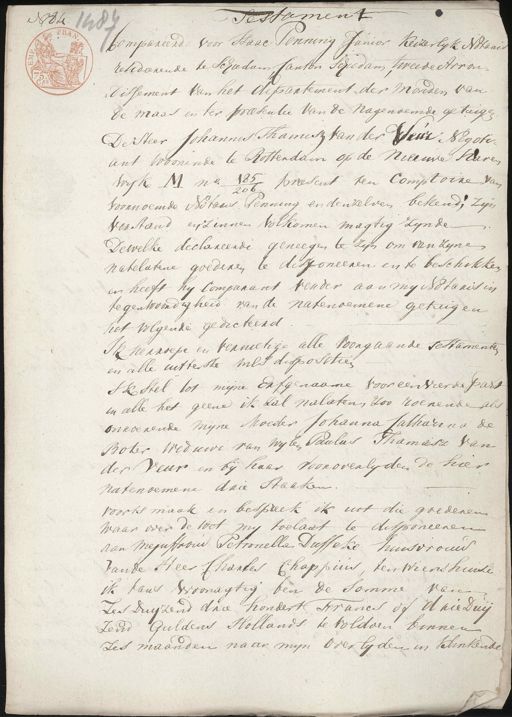 N 82 1487
Testament
Compareerd voor Isaac Penning Junior Keizerlijk Notaris
residerende te Schiedam Canton Schiedam, tweede Arron
dissement van het departement der Monden van
de Maas en ter presentie van de nagenoemde getuigen
De Heer Johannes Thamesz van der Veur Negoti
ant woonende te Rotterdam op de Nieuwe Haven
Wyk M no 185/206 present ten Comptoire van
voornoemde Notaris Penning en denzelven bekend, zijn
verstand en zinnen volkomen magtig zijnde
Dewelke declareerde geneegen te zijn om van zyne
natelatene goederen te disponeeren en te beschikken
en heeft hy Comparant verder aan my Notaris in
tegenwoordigheid van de natenoemene getuigen
het volgende gedicteerd
Ik herroepe en vernietige alle voorgaande testamenten
en alle uitterste wils dispositien
Ik stel tot mijne Erfgenaame voor een vierde part
in alle het geene ik zal nalaten, zoo roerende als
onroerende mijne Moeder Johanna Catharina de
Boter weduwe van wylen Paulus Thamesz van
der Veur en bij haar vooroverlyden de hier
natenoemene drie Staaken.
voorts maak en bespreek ik uit die goederen
waar over de wet my toelaat te disponeeren
aan Mejuffrouw Petronella Duffeke huisvrouw
van de Heer Charles Chappius, ten wiens huise
ik thans woonagtig ben de Somme van
Zes duyzend drie hondert Francs of drie duy
zend Guldens Hollands te voldoen binnen
zes maanden naar mijn overlyden in klinkende